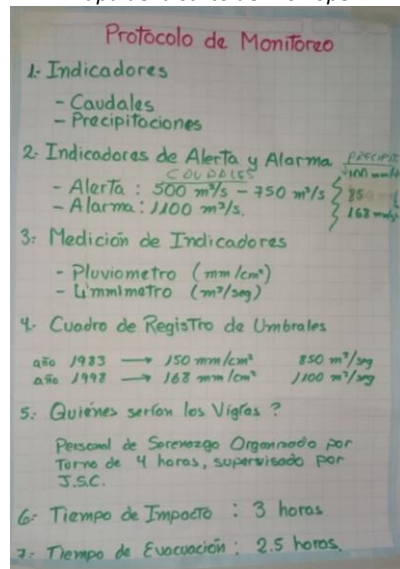 Protocolo de Monitoreo
1.- Indicadores
- Caudales
- Precipitaciones
2.- Indicadores de Alerta y Alarma
CAUDALES
- Alerta : 500 m³/s - 750 m³/s
- Alarma : 1100 m³/s.
3.- Medición de Indicadores
- Pluviometro (mm/cm²)
- Limmimetro (m³/seg)
4.- Cuadro de Registro de Umbrales
año 1983 → 150 mm/cm² 850 m³/seg
año 1998 → 168 mm/cm² 1100 m³/seg
5.- Quiénes serían los Vigías ?
Personal de Serenazgo Organizado por
Turno de 4 horas, supervisado por
J.S.C.
6.- Tiempo de Impacto : 3 horas
7.- Tiempo de Evacuación : 2.5 horas.